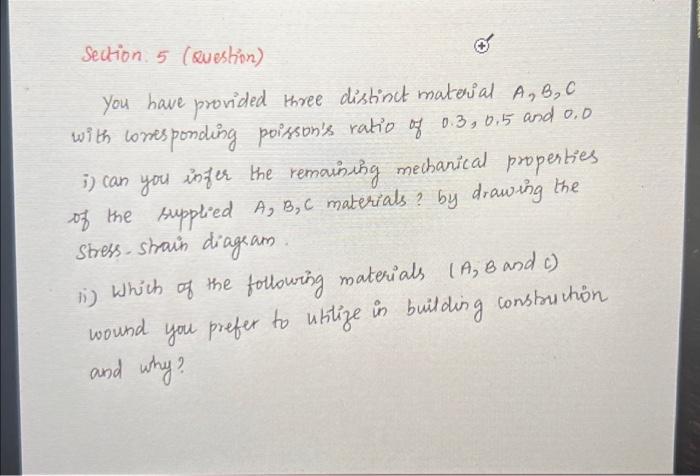 Section. 5 (Question)
You have provided three distinct material A, B, C
with corresponding poisson's ratio of 0.3, 0.5 and 0.0
i) can you infer the remaining mechanical properties
of the supplied A, B, C materials? by drawing the
Stress-strain diagram.
ii) Which of the following materials (A, B and C)
wound you prefer to utilize in building construction
and why?